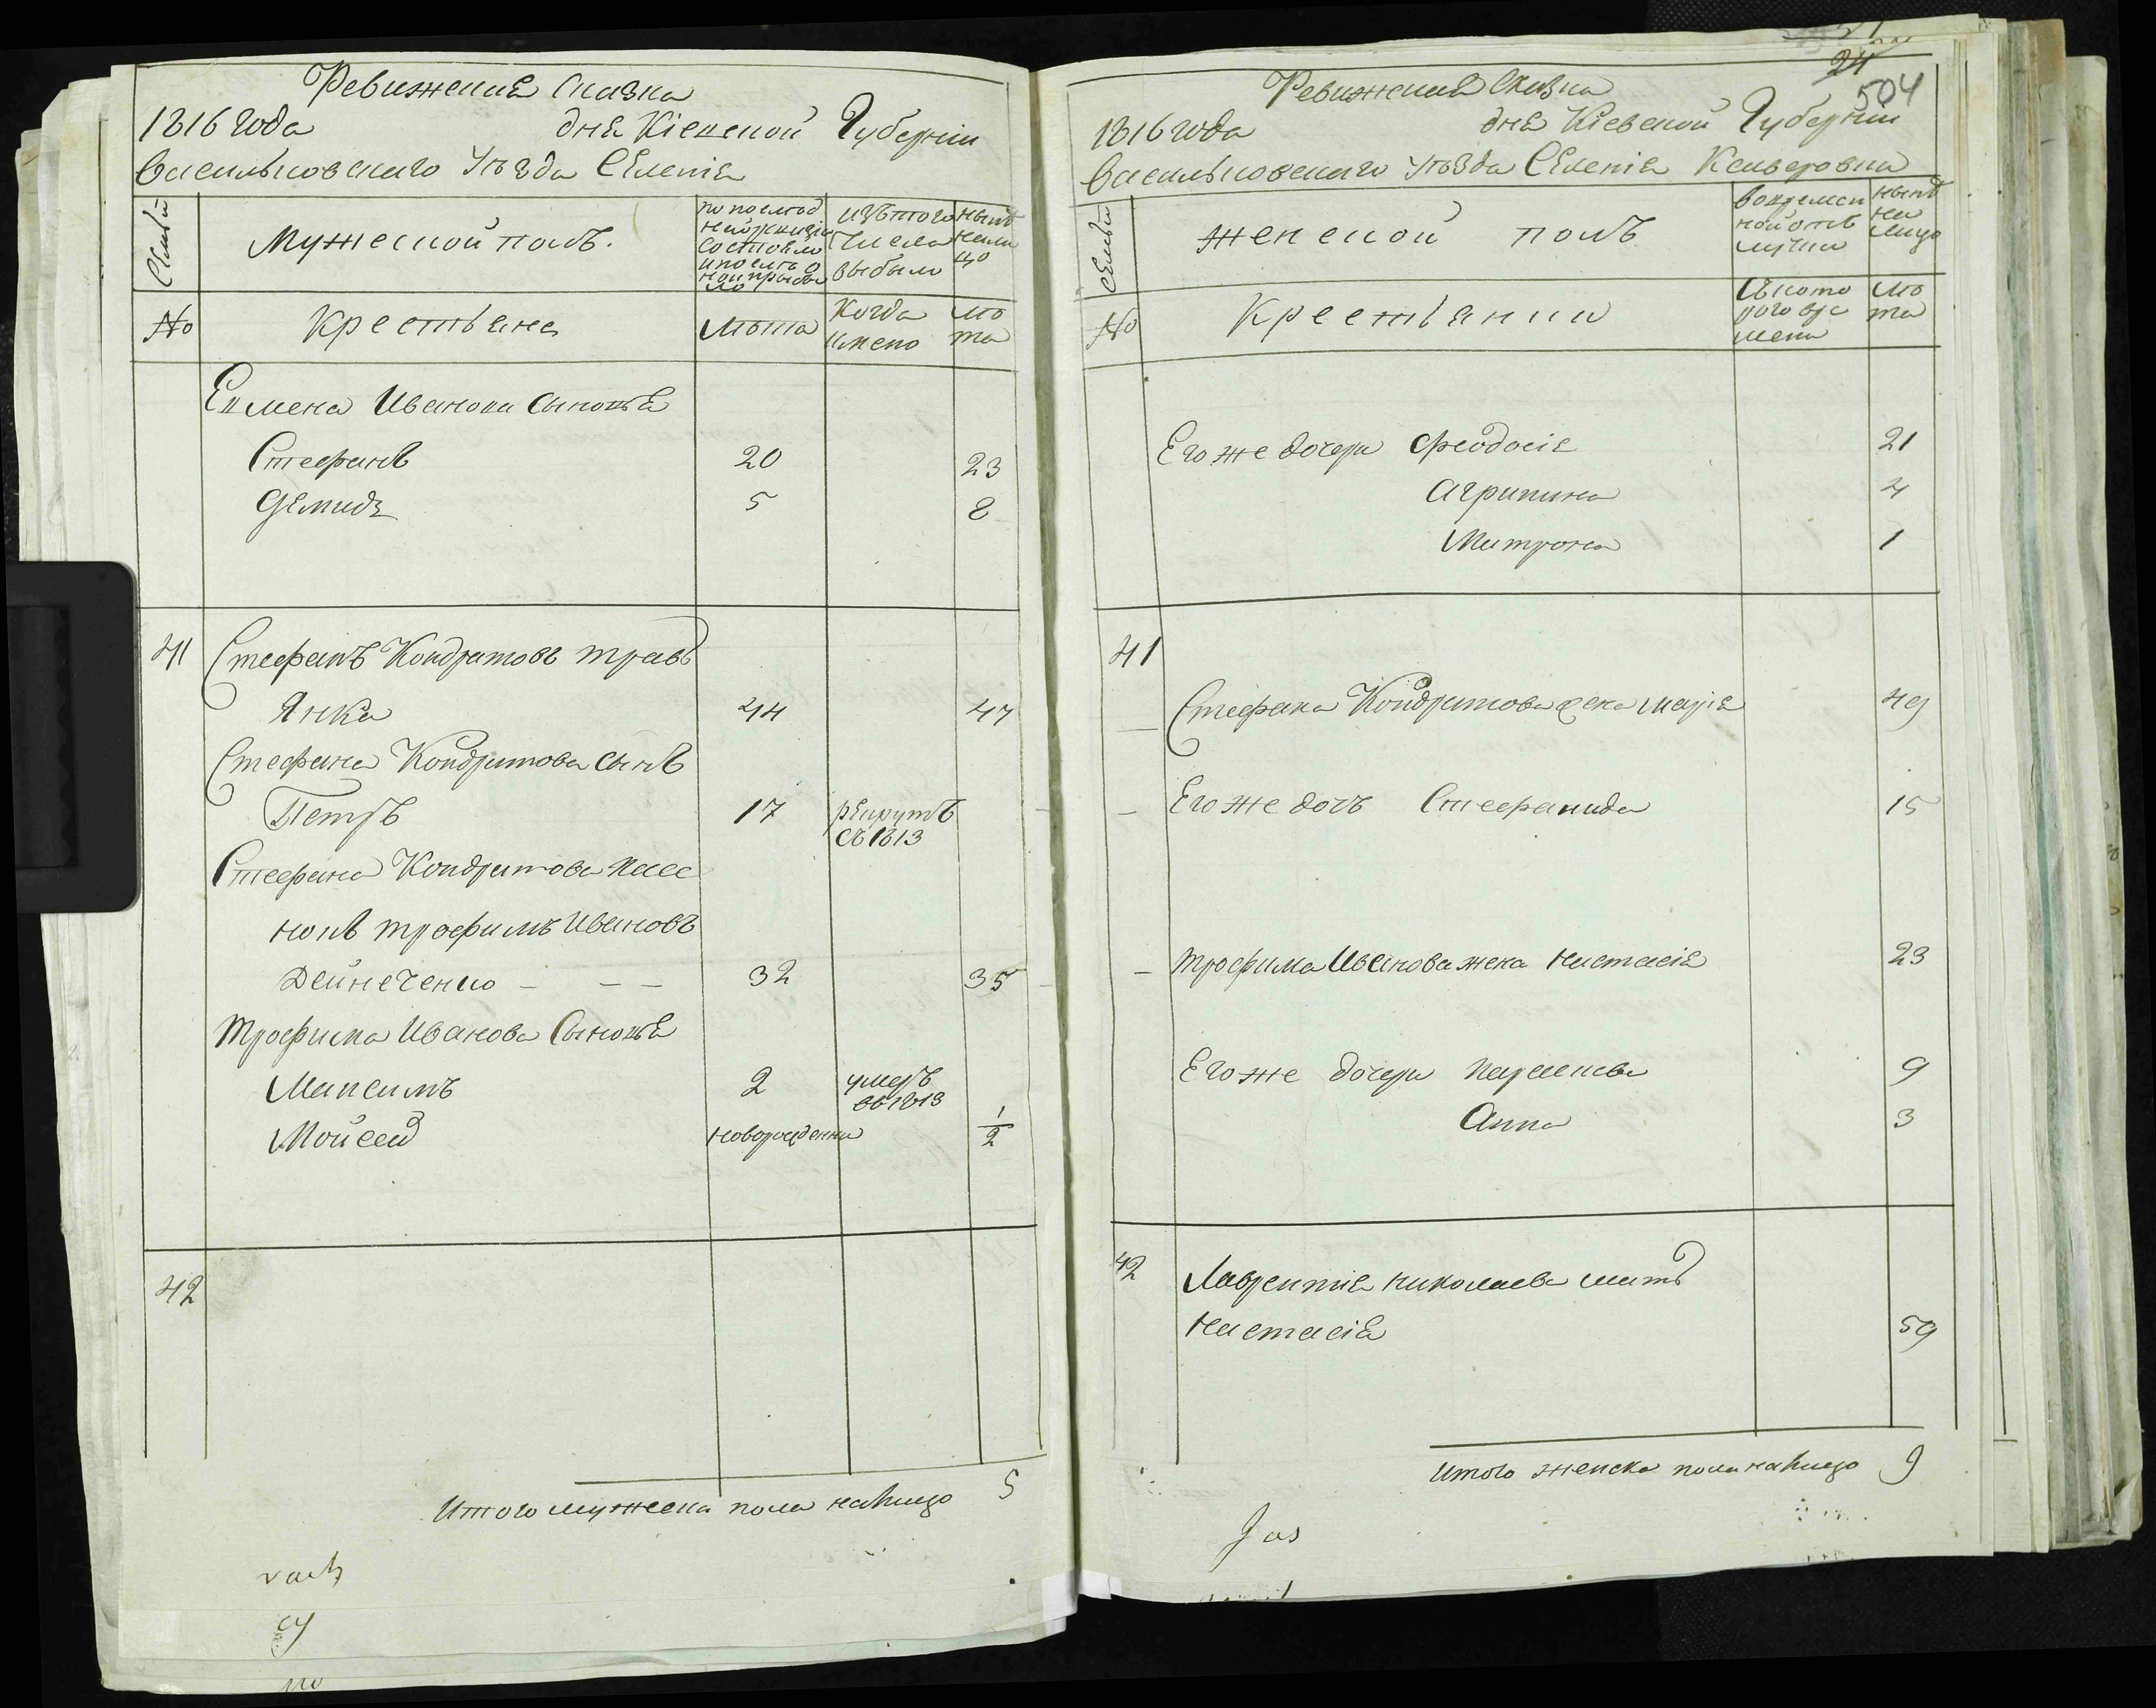 Ревижския Сказка
1816 года дня Кіевской Губерніи
Васильковского Уѣзда Селенія
Семьи
Мужеской полъ.
по послѣд
ней ревизіи
состояло
и послѣ о
ной прибы
ло
изъ того
числа
выбыло
нынѣ
нали
цо
No
Крестьяне
Лѣта
Когда
имено
лѣ
та
Еимена Иванова сыновья
Стефанъ 20 23
Демидъ 5 8
41 Стефанъ Кондратовъ трав
янка 44 47
Стефана Кондратова сынъ
Петръ 17 рекрутъ
съ 1813
Стефана Кондратова пасе
нокъ трофимъ Ивановъ
Дейнеченко - - - 32 35
Трофима Иванова Сыновья
Максимъ 2 умеръ
въ 1813
Мойсей новорожденны 1/2
42
Итого мужеска пола налицо 5
24
504
Ревижския Сказка
1816 года дня Кіевской Губерніи
Васильковского Уѣзда Селенія
Семьи
женской полъ
во времен
ной отъ
лучки
нынѣ
на
лицо
No
Крестьянки
Съ кото
рого вре
мени
лѣ
та
Его же дочери Феодосія 21
Агрипина 4
Матрона 1
41
Стефана Кондратова жена марія 49
Его же дочь Стефанида 15
трофима Иванова жена Настасія 23
Его же дочери параскева 9
Анна 3
42 Лаврентія николаева мать
Настасія 59
Итого женска пола налицо 9